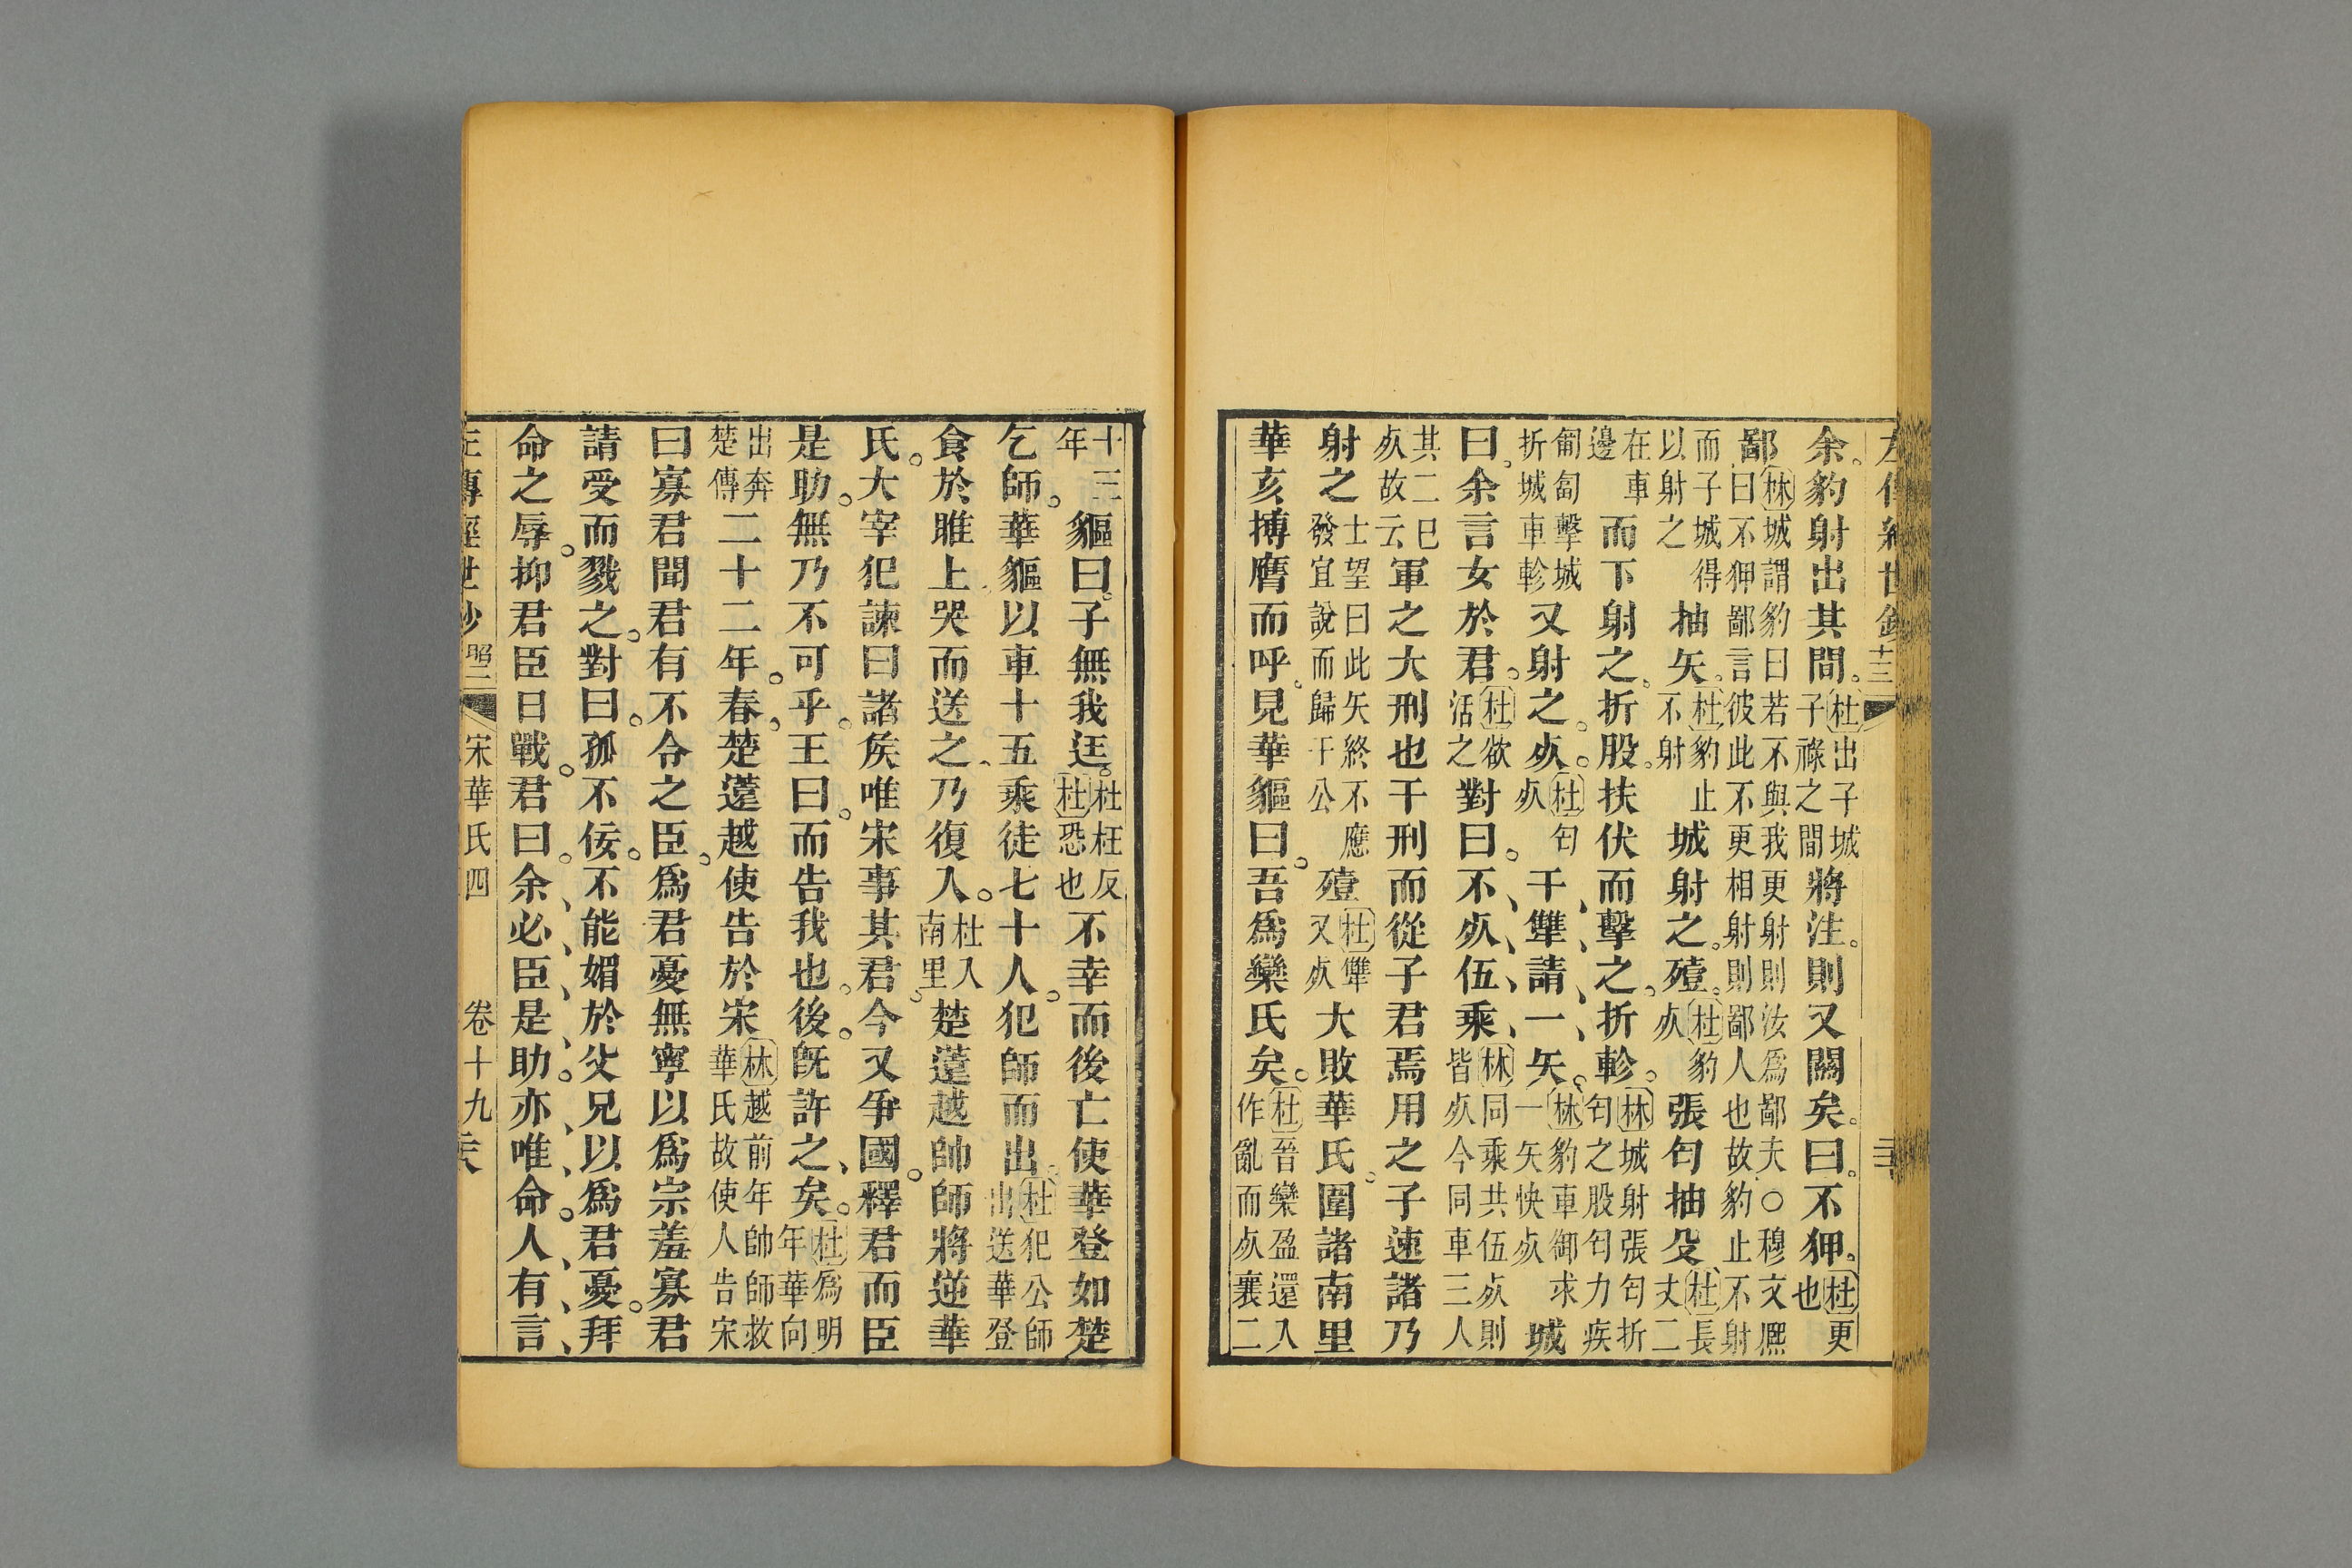 余豹射出其間杜出子城子祿之間將注則又關矣曰不狎杜更也
鄙林城謂豹曰若不與我更射則汝爲鄙夫○穆文熈曰不狎鄙言彼此不更相射則鄙人也故豹止不射
而子城得以射之抽矢杜豹止不射城射之殪杜豹㱙張匄抽殳杜長丈二
在車邊而下射之折股扶伏而擊之折軫林城射張匄折匄之股匄力疾
匍匐擊城折城車軫又射之㱙杜匄㱙干犨請一矢林豹車御求一矢快㱙城
曰余言女於君杜欲活之對曰不㱙伍乘林同乘共伍㱙則皆㱙今同車三人
其二已㱙故云軍之大刑也干刑而從子君焉用之子速諸乃
射之士望曰此矢終不應發宜說而歸干公殪杜犨又㱙大敗華氏圍諸南里
華亥搏膺而呼見華貙曰吾爲欒氏矣杜晉欒盈還入作亂而㱙襄二
十三年貙曰子無我迋杜枉反杜恐也不幸而後亡使華登如楚
乞師華貙以車十五乘徒七十人犯師而出杜犯公師出送華登
食於睢上哭而送之乃復入杜入南里楚薳越帥師將逆華
氏大宰犯諫曰諸矦唯宋事其君今又爭國釋君而臣
是助無乃不可乎王曰而告我也後旣許之矣杜爲明年華向
出奔楚傳二十二年春楚薳越使告於宋林越前年帥師救華氏故使人告宋
曰寡君聞君有不令之臣爲君憂無寧以爲宗羞寡君
請受而戮之對曰孤不佞不能媚於父兄以爲君憂拜
命之辱抑君臣日戰君曰余必臣是助亦唯命人有言
宋華氏四 卷十九